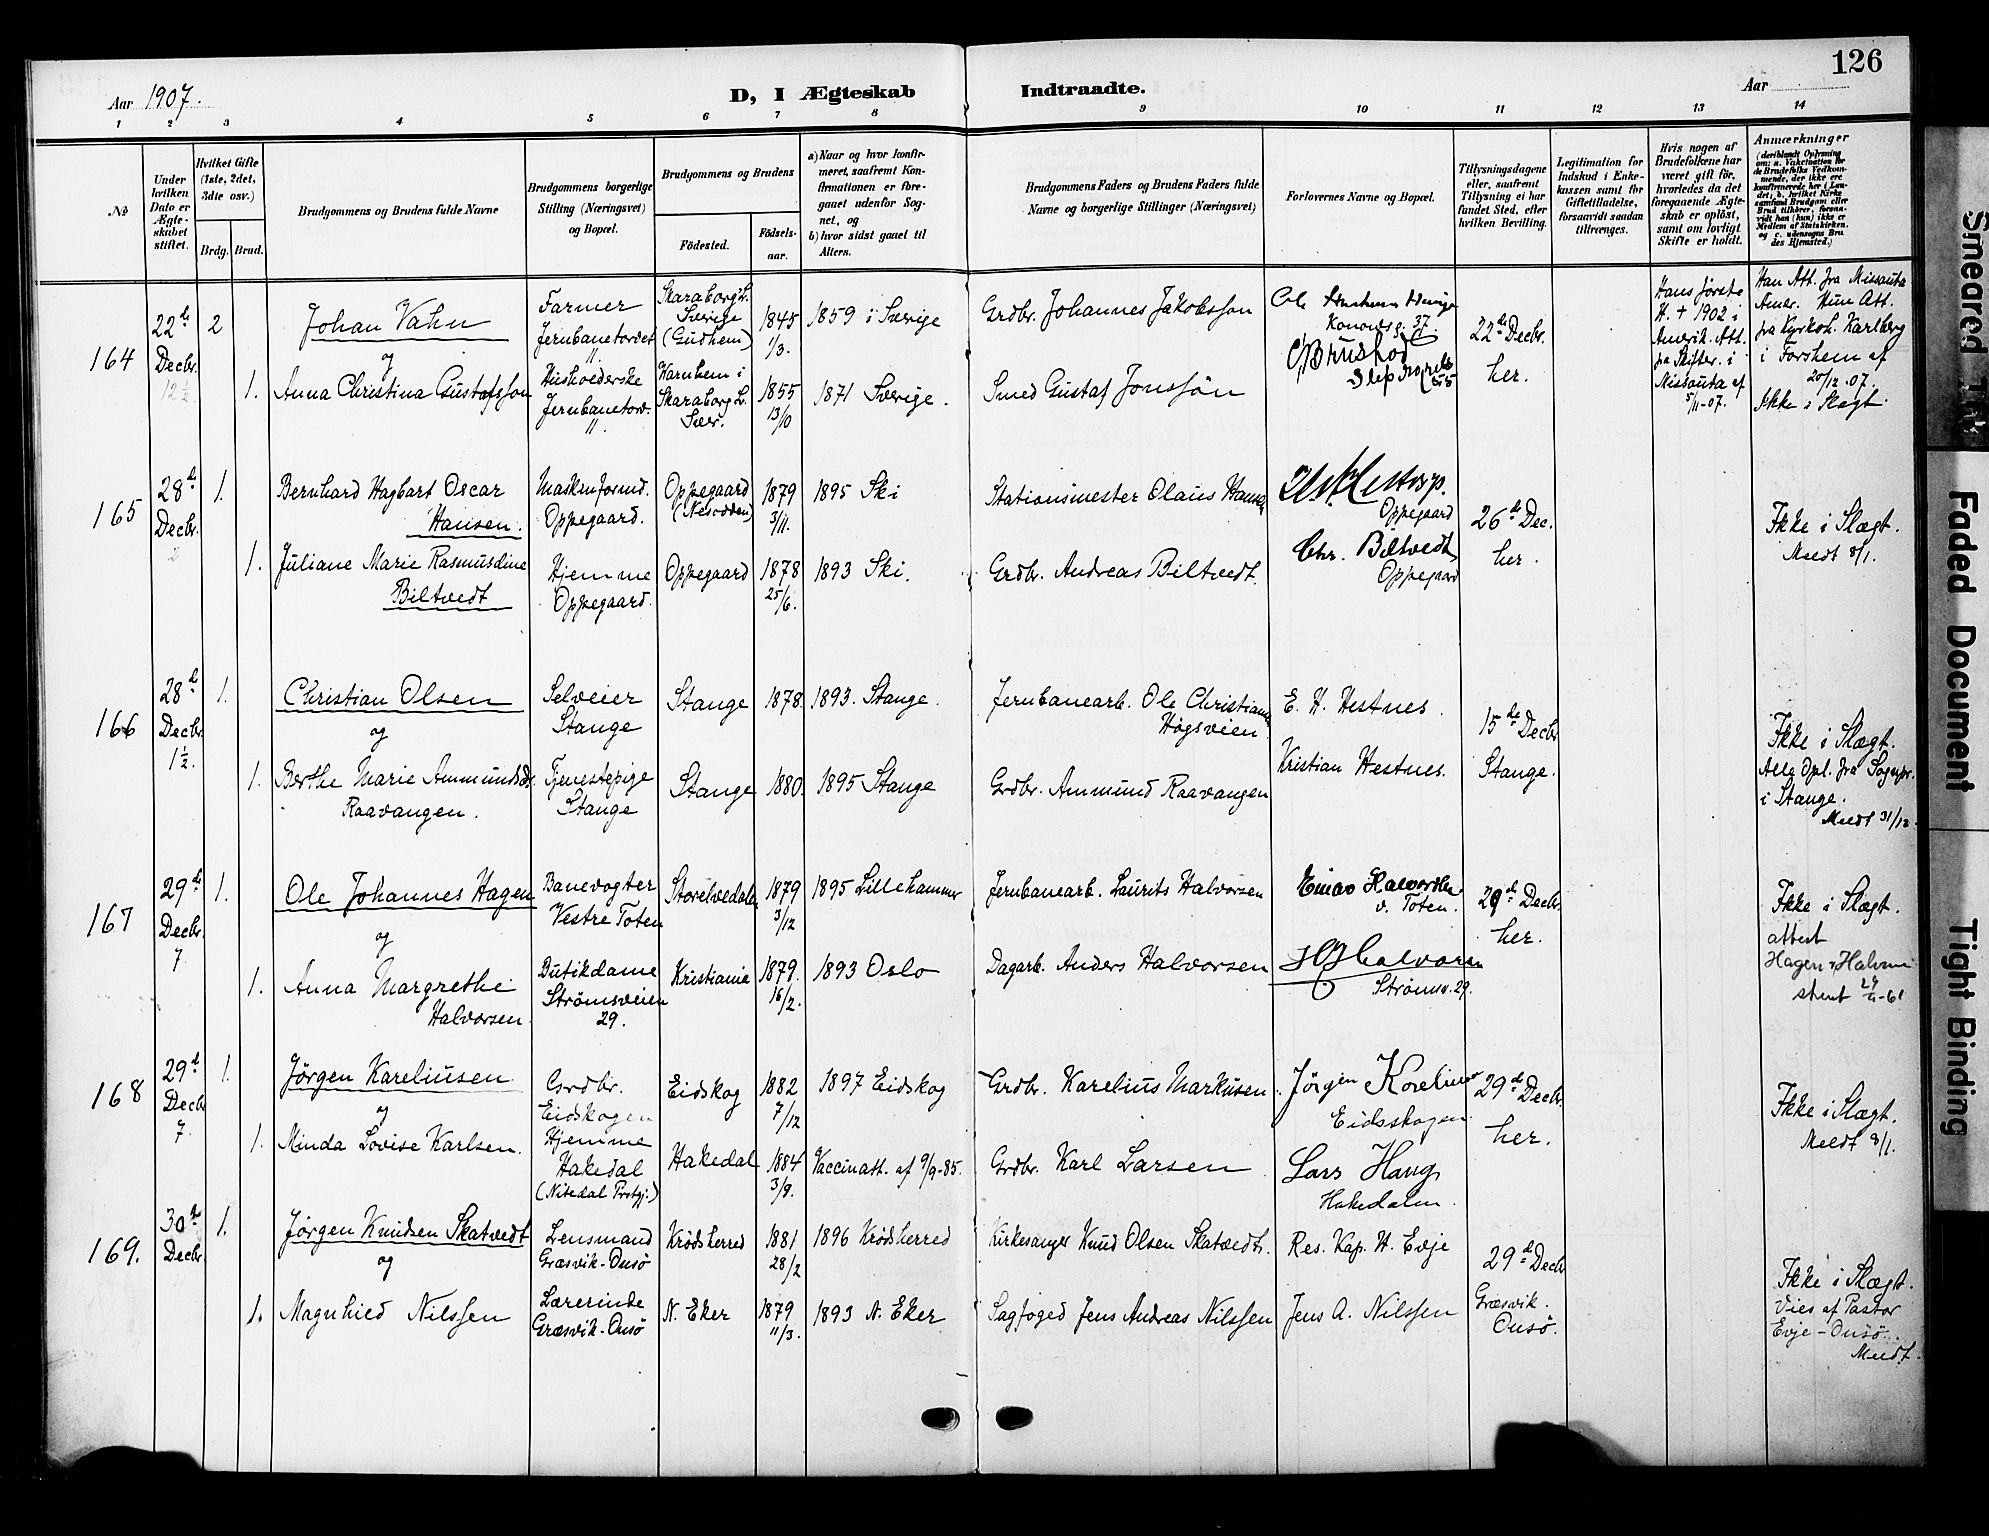 126
Aar 1907.
D, I Ægteskab Indtraadte.
Aar
1 2 3 4 5 6 7 8 9 10 11 12 13 14
No
Under hvilken Dato er Ægteskabet stiftet.
Hvilket Gifte (1ste, 2det, 3dte osv.)
Brdg. Brud.
Brudgommens og Brudens fulde Navne
Brudgommens borgerlige Stilling (Næringsvei) og Bopæl.
Brudgommens og Brudens
Fødested.
Fødselsaar.
a) Naar og hvor konfirmeret, saafremt Konfirmationen er foregaaet udenfor Sognet, og
b) hvor sidst gaaet til Alters.
Brudgommens Faders og Brudens Faders fulde Navne og borgerlige Stillinger (Næringsvei)
Forlovernes Navne og Bopæl.
Tillysningsdagene eller, saafremt Tillysning ei har fundet Sted, efter hvilken Bevilling.
Legitimation for Indskud i Enkekassen samt for Giftetilladelse, forsaavidt saadan tiltrænges.
Hvis nogen af Brudefolkene har været gift før, hvorledes da det foregaaende Ægteskab er opløst, samt om lovligt Skifte er holdt.
Anmærkninger
(deriblandt Oplysning om: a. Vakcination for de Brudefolks Vedkommende, der ikke ere konfirmerede her i Landet, b. hvilket Kirkesamfund Brudgom eller Brud tilhører, forsaavidt han (hun) ikke er Medlem af Statskirken, og c. udensogns Brudes Hjemsted.)
164
22de Decbr. 12½
2
Johan Vahn
og
Farmer
Jernbanetorvet 11.
Skaraborg L. Sverige (Gudhem)
1845 1/3.
1859 i Sverige
Grdbr. Johannes Jakobsson
37.
22de Decbr. her.
Hans første H. † 1902 i Amerik. Att. fra Skifter. i Missouta af 5/11-07.
Han Att. fra Missouta Amer. Hun Att. fra Kyrkoh. Karlberg i Forshem af 20/12 07. Ikke i Slægt.
1.
Anna Christina Gustafsson
Husholderske
Jernbanetorv. 11.
Karnhem i Skaraborg L. Sver.
1855 13/10
1871 Sverige.
Smed Gustaf Jonssøn
165
28de Decbr. 2
1.
Bernhard Hagbart Oscar
Hansen.
Maskinformd.
Oppegaard.
Oppegaard (Nesodden)
1879 3/11.
1895 Ski
Stationsmester Olaus Hansen
Oppegaard
26de Dec. her.
Ikke i Slægt.
Meldt 8/1.
1.
Juliane Marie Rasmusdine
Biltvedt
Hjemme
Oppegaard.
Oppegaard
1878 25/6.
1893 Ski.
Grdbr. Andreas Biltvedt.
Chr. Biltvedt
Oppegaard
166
28de Decbr. 1½.
1.
Christian Olsen
og
Selveier
Stange
Stange
1878.
1893. Stange.
Jernbanearb. Ole Christians.
Høgsveien.
E. H. Hestnes.
15de Decbr Stange.
Ikke i Slægt.
Alle Opl. fra Sognepr.
i Stange.
Meldt 31/12
1.
Berthe Marie Ammundsdr.
Raavangen.
Tjenestepige
Stange
Stange
1880.
1895 Stange
Grdbr. Ammund Raavangen
Kristian Hestnes.
167
29de Decbr. 7.
1.
Ole Johannes Hagen
og
Banevogter
Vestre Toten
Storelvedalen
1879 3/12
1895 Lillehammer
Jernbanearb. Laurits Halvorsen
Einar Halvorsen
v. Toten.
29de Decbr. her.
Ikke i Slægt.
attest
Hagen
1.
Anna Margrethe
Halvorsen.
Butikdame
Strømsveien 29.
Kristiania
1879. 16/2.
1893 Oslo
Dagarb. Anders Halvorsen
Strømsv. 29.
168
29de Decbr 7.
1.
Jørgen Kareliusen
og
Grdbr.
Eidskogen
Eidskog
1882 7/12
1897 Eidskog
Grdbr. Karelius Markusen.
Jørgen Koreliusen
Eidsskogen
29de Decbr. her.
Ikke i Slægt.
Meldt 8/1.
1.
Minda Lovise Karlsen.
Hjemme
Hakedal
(Nitedal Prstgj.)
Hakedal
1884 3/8.
Vaccinatt. af 9/9-85.
Grdbr. Karl Larsen
Lars Haug
Hakedalen.
169.
30te Decbr.
1.
Jørgen Knudsen Skatvedt
og
Lensmand
Græsvik-Onsö
Krødsherred
1881 28/2
1896 Krødsherred
Kirkesanger Knud Olsen Skatvedt.
Res. Kap. H. Evje
29de Decbr
Græsvik. Onsö.
Ikke i Slægt.
Vies af Pastor
Evje-Onsö.
Meldt.
1.
Magnhild Nilssen
Lærerinde
Græsvik-Onsö
N. Eker
1879 11/3.
1893 N. Eker
Sagfoged Jens Andreas Nilssen
Jens A. Nilssen
Smeared Ink
Faded Document
Tight Binding